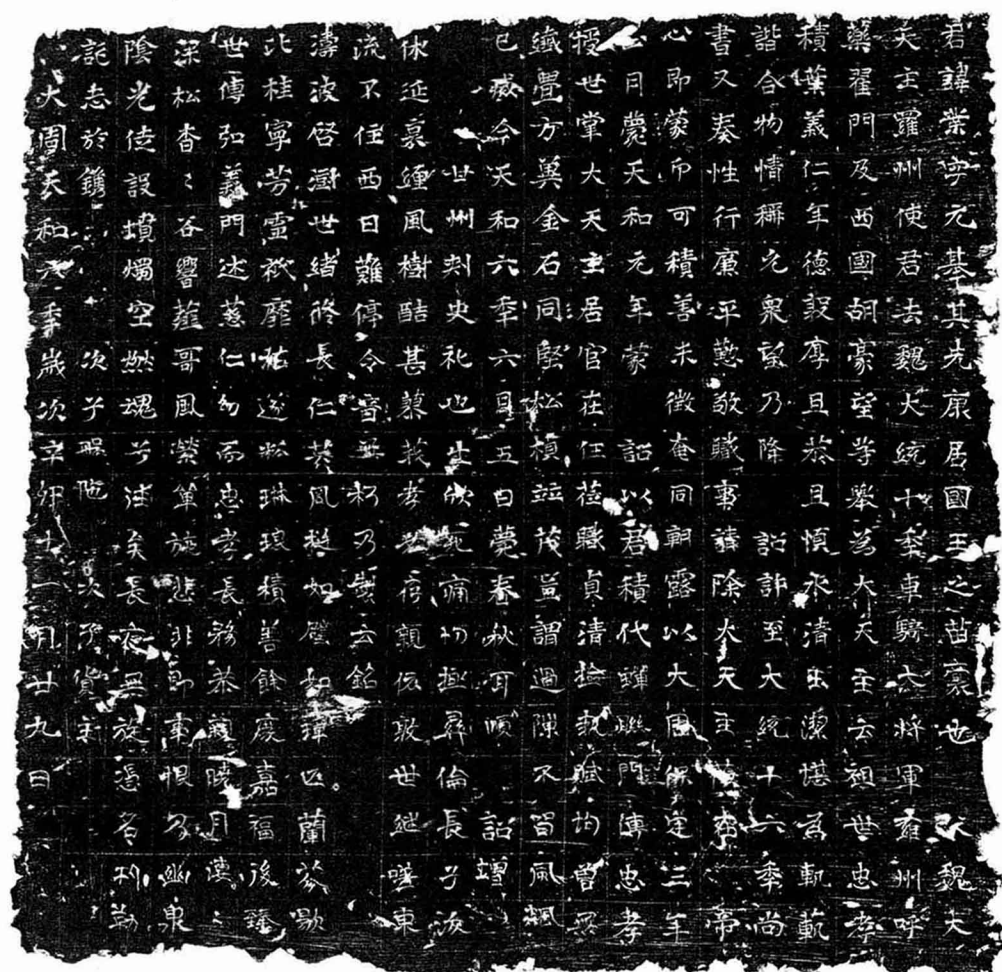 君諱業字元基其先康居國王之苗裔也父魏大
天主羅州使君去魏大統十年車騎大將軍雍州呼
藥翟門及西國胡豪望等舉為大天主云祖世忠孝
積葉義仁年德敦厚且恭且慎冰清玉潔堪為軌範
諧合物情稱允衆望乃降詔許至大統十六年尚
書又奏性行廉平懃敬職事請除大天主帝
心即蒙而可積善未徵奄同朝露以大周保定三年
正月薨天和元年蒙詔以君積代蟬聯門傳忠孝
授世掌大天主居官在任蒞職貞清檢執賦均曾無
纖疊方冀金石同堅松楨並茂豈謂過隙不留風颻
已滅今天和六年六月五日薨春秋詔贈
甘州刺史礼也痛切極尋倫長子汳
休延哀纏風樹酷甚蓼莪孝顏依世繼嗟東
流不住西日難停令音無朽乃製云銘
濤波啓世緒脩長仁英鳳挺如璧如璋匹蘭芬馥
比桂寧芳靈祇靡祐遂殄琳琅積善餘慶嘉福後臻
世傳弘義門述慈仁幼而忠孝長務恭曉月澄々
深松杳々谷響薤哥風縈單旐悲非節事恨乃幽泉
陰光徒設墳燭空燃魂兮逝矣長夜無旋憑名刊勒
託志於鐫次子晊陁次子貨主
大周天和六年歲次辛卯十一月廿九日